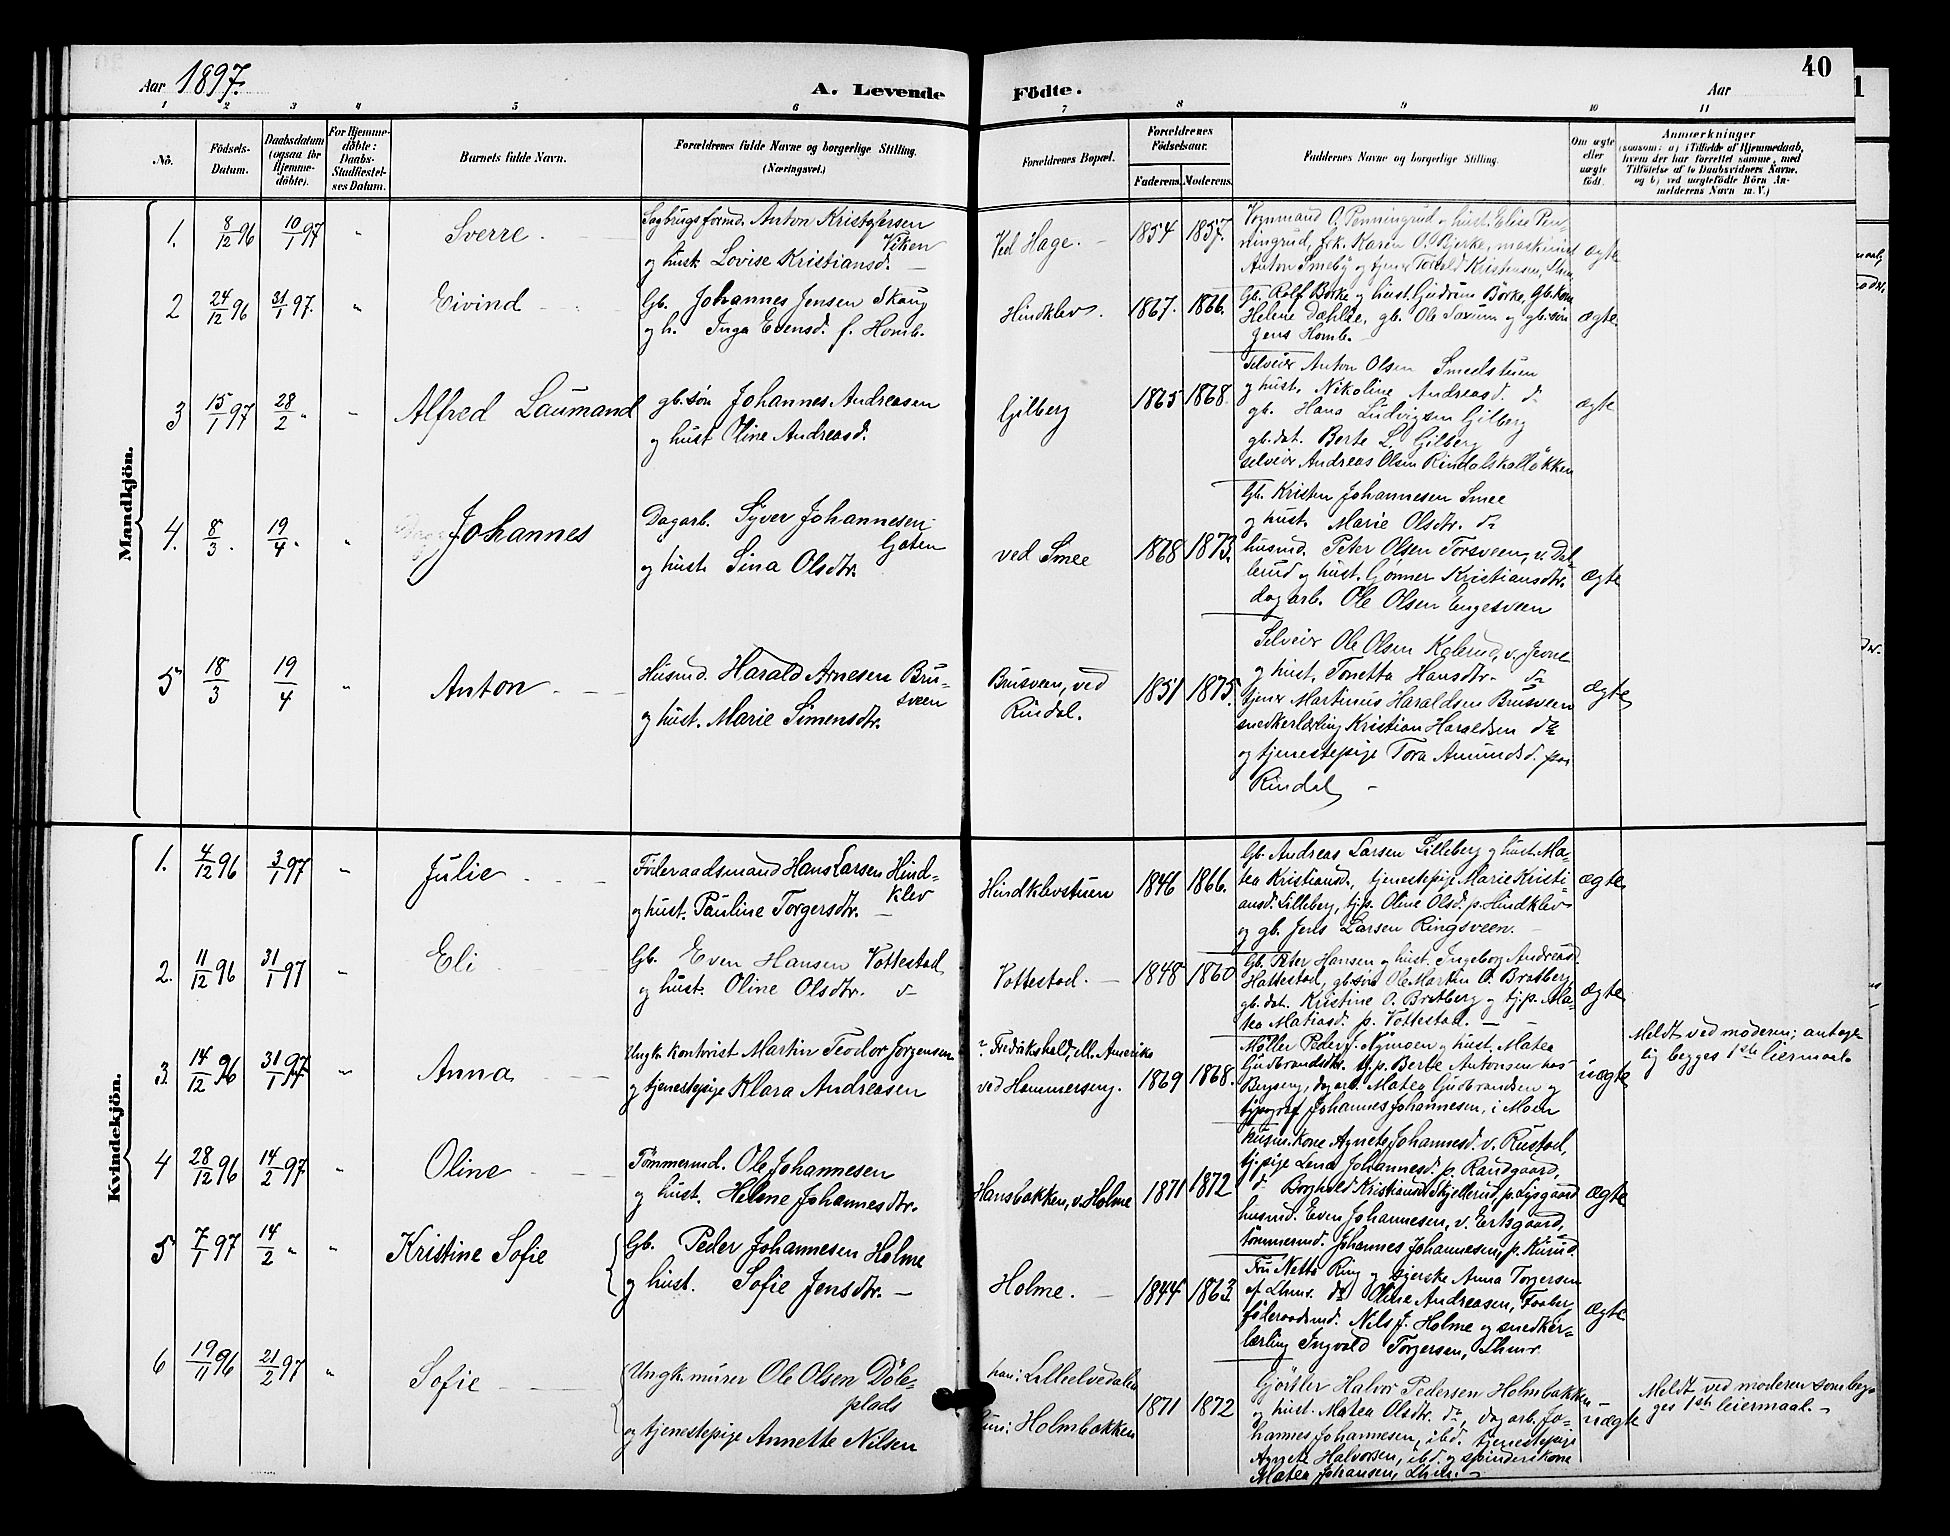 Aar 1897.
A. Levende Födte.
Aar
40
1 2 3 4 5 6 7 8 9 10 11
No.
Födsels-Datum.
Daabsdatum (ogsaa for Hjemme-döbte).
For Hjemme-döbte: Daabs-Stadfæstel-ses Datum.
Barnets fulde Navn.
Forældrenes fulde Navne og borgerlige Stilling. (Næringsvei.)
Forældrenes Bopæl.
Forældrenes Födselsaar.
Faderens. Moderens.
Faddernes Navne og borgerlige Stilling.
Om ægte eller uægte födt.
Anmærkninger
(saasom: a) i Tilfælde af Hjemmedaab, hvem der har forrettet samme, med Tilföielse af to Daabsvidners Navne, og b) ved uægtefödte Börn An-melderens Navn m. V.)
Mandkjön.
1. 8/12 96 10/1 97 " Sverre. —
Sagbrugsformd. Anton Kristofersen
Viken
og hust. Lovise Kristiansd. —
Ved Hage. — 1854 1857.
Vognmand O. Penningrud og hust. Elise Pen-
ningrud, frk. Karen O. Bjerke, maskinist
Anton Smeby og tjener Torvald Kristensen, Lhmr
ægte
2 24/12 96 31/1 97. " Eivind
Gb. Johannes Jensen Skaug
og h. Inga Evensd. f. Homb.
Hindklev. 1867. 1866.
Gb. Rolf Börke og hust. Gudrun Börke, Gb.kone
Helene Dæhlie, gb. Ole og gb.søn
Jens Homb.
ægte.
3 15/1 97 28/2 " " Alfred Laumand
gb.søn Johannes Andreasen
og hust Oline Andreasd.
Gilberg 1865 1868.
Selveier Anton Olsen Smeelstuen
og hust. Nikoline Andreasd. do
gb. Hans Ludvigsen Gilberg
gb.dat. Berte L. Gilberg
selveier Andreas Olsen Rindalskalløkken
ægte
4. 8/3. 19/4 " " Johannes
Dagarb. Syver Johannesen
Gaten
og hust. Sina Olsdtr.
ved Smee 1868 1873.
Gb. Kristen Johannesen Smee
og hust. Marie Olsdtr. do
husmd. Peter Olsen Torsveen, v. Dal-
lerud og hust. Gønner Kristiansdtr.
dagarb. Ole Olsen Engesveen
ægte
5 18/3 19/4 " Anton. —
Husmd. Harald Arnesen Bru-
sveen
og hust. Marie Simensdtr.
Brusveen, ved
Rindal.
1851 1875.
Selveier Ole Olsen Kolerud, v. Jevne
og hust. Tonetta Hansdtr. do
tjener Martinus Haraldsen Brusveen
snedkerlærling Kristian Haraldsen do
og tjenestepige Tora Amundsd. paa
Rindal —
ægte
Kvindekjön.
1. 4/12 96 3/1 97 " Julie. —
Föderaadsmand Hans Larsen Hind-
klev
og hust. Pauline Torgersdtr. —
Hindklevstuen 1846 1866.
Gb. Andreas Larsen Lilleberg og hust. Ma-
tea Kristiansd., tjenestepige Marie Kristi-
ansd. Lilleberg, tj.p. Oline Olsd. p. Hindklev
og gb. Jens Larsen Ringsveen. —
ægte
2. 11/12 96 31/1 97 " Eli
Gb. Even Hansen Vottestad
og hust. Oline Olsdtr. do
Vottestad. — 1848 1860
Gb. Peter Hansen og hust. Ingeborg Andreasd.
Hattestad, gb.søn Ole Martin O. Bratberg,
gb.dat. Kristine O. Bratberg og tj.p. Ma-
tea Matiasd. p. Vottestad. —
ægte
3. 14/12 96 31/1 97 " Anna
Ungk. kontorist Martin Teodor Jørgensen
og tjenestepige Klara Andreasen
? Fredrikshald, ell. Amerika
ved Hammerseng. 1869 1868.
Møller Peder J. Nymoen og hust. Matea
Gudbrandsdtr. tj.p. Berte Antonsen hos
Bryseng, dagarb. Matea Gudbrandsen og
typograf Johannes Johannesen, i Moen
uægte
Meldt ved moderen; antage-
lig begges 1ste leiermaal.
4 28/12 96 14/2 97 " Oline
Tømmermd. Ole Johannesen
og hust. Helene Johannesdtr.
Hansbakken, v. Holme 1871 1872
husm.kone Agnete Johannesd. v. Rustad,
tj.pige Lena Johannesd. p. Randgaard,
do Borghild Kristiansd. Skjellerud, p. Lysgaard
husmd. Even Johannesen, v. Ersgaard,
tømmermd. Johannes Johannesen, p. Kurud.
ægte
5 7/1 97 14/2 " " Kristine Sofie
Gb. Peder Johannesen Holme
og hust. Sofie Jensdtr. —
Holme. — 1844 1863.
Fru Netta Ring og syerske Anna Torgersen
af Lhmr. do Oline Andreasen, Faaberg
føderaadsmd. Nils J. Holme og snedker-
lærling Ingvald Torgersen, Lhmr.
ægte
6 19/11 96 21/2 97 " Sofie —
Ungk. murer Ole Olsen Döle-
plads
og tjenestepige Annette Nilsen
han: Lilleelvedalen
hun: Holmbakken
1871 1872
Gjørtler Halvor Pedersen Holmbakken
og hust. Matea Olsdtr. do, dagarb. Jo-
hannes Johannesen, ibd. tjenestepige
Agnete Halvorsen, ibd. og spinderskone
Matea Johansen, Lhmr. —
uægte
Meldt ved moderen som beg-
ges 1ste leiermaal. —